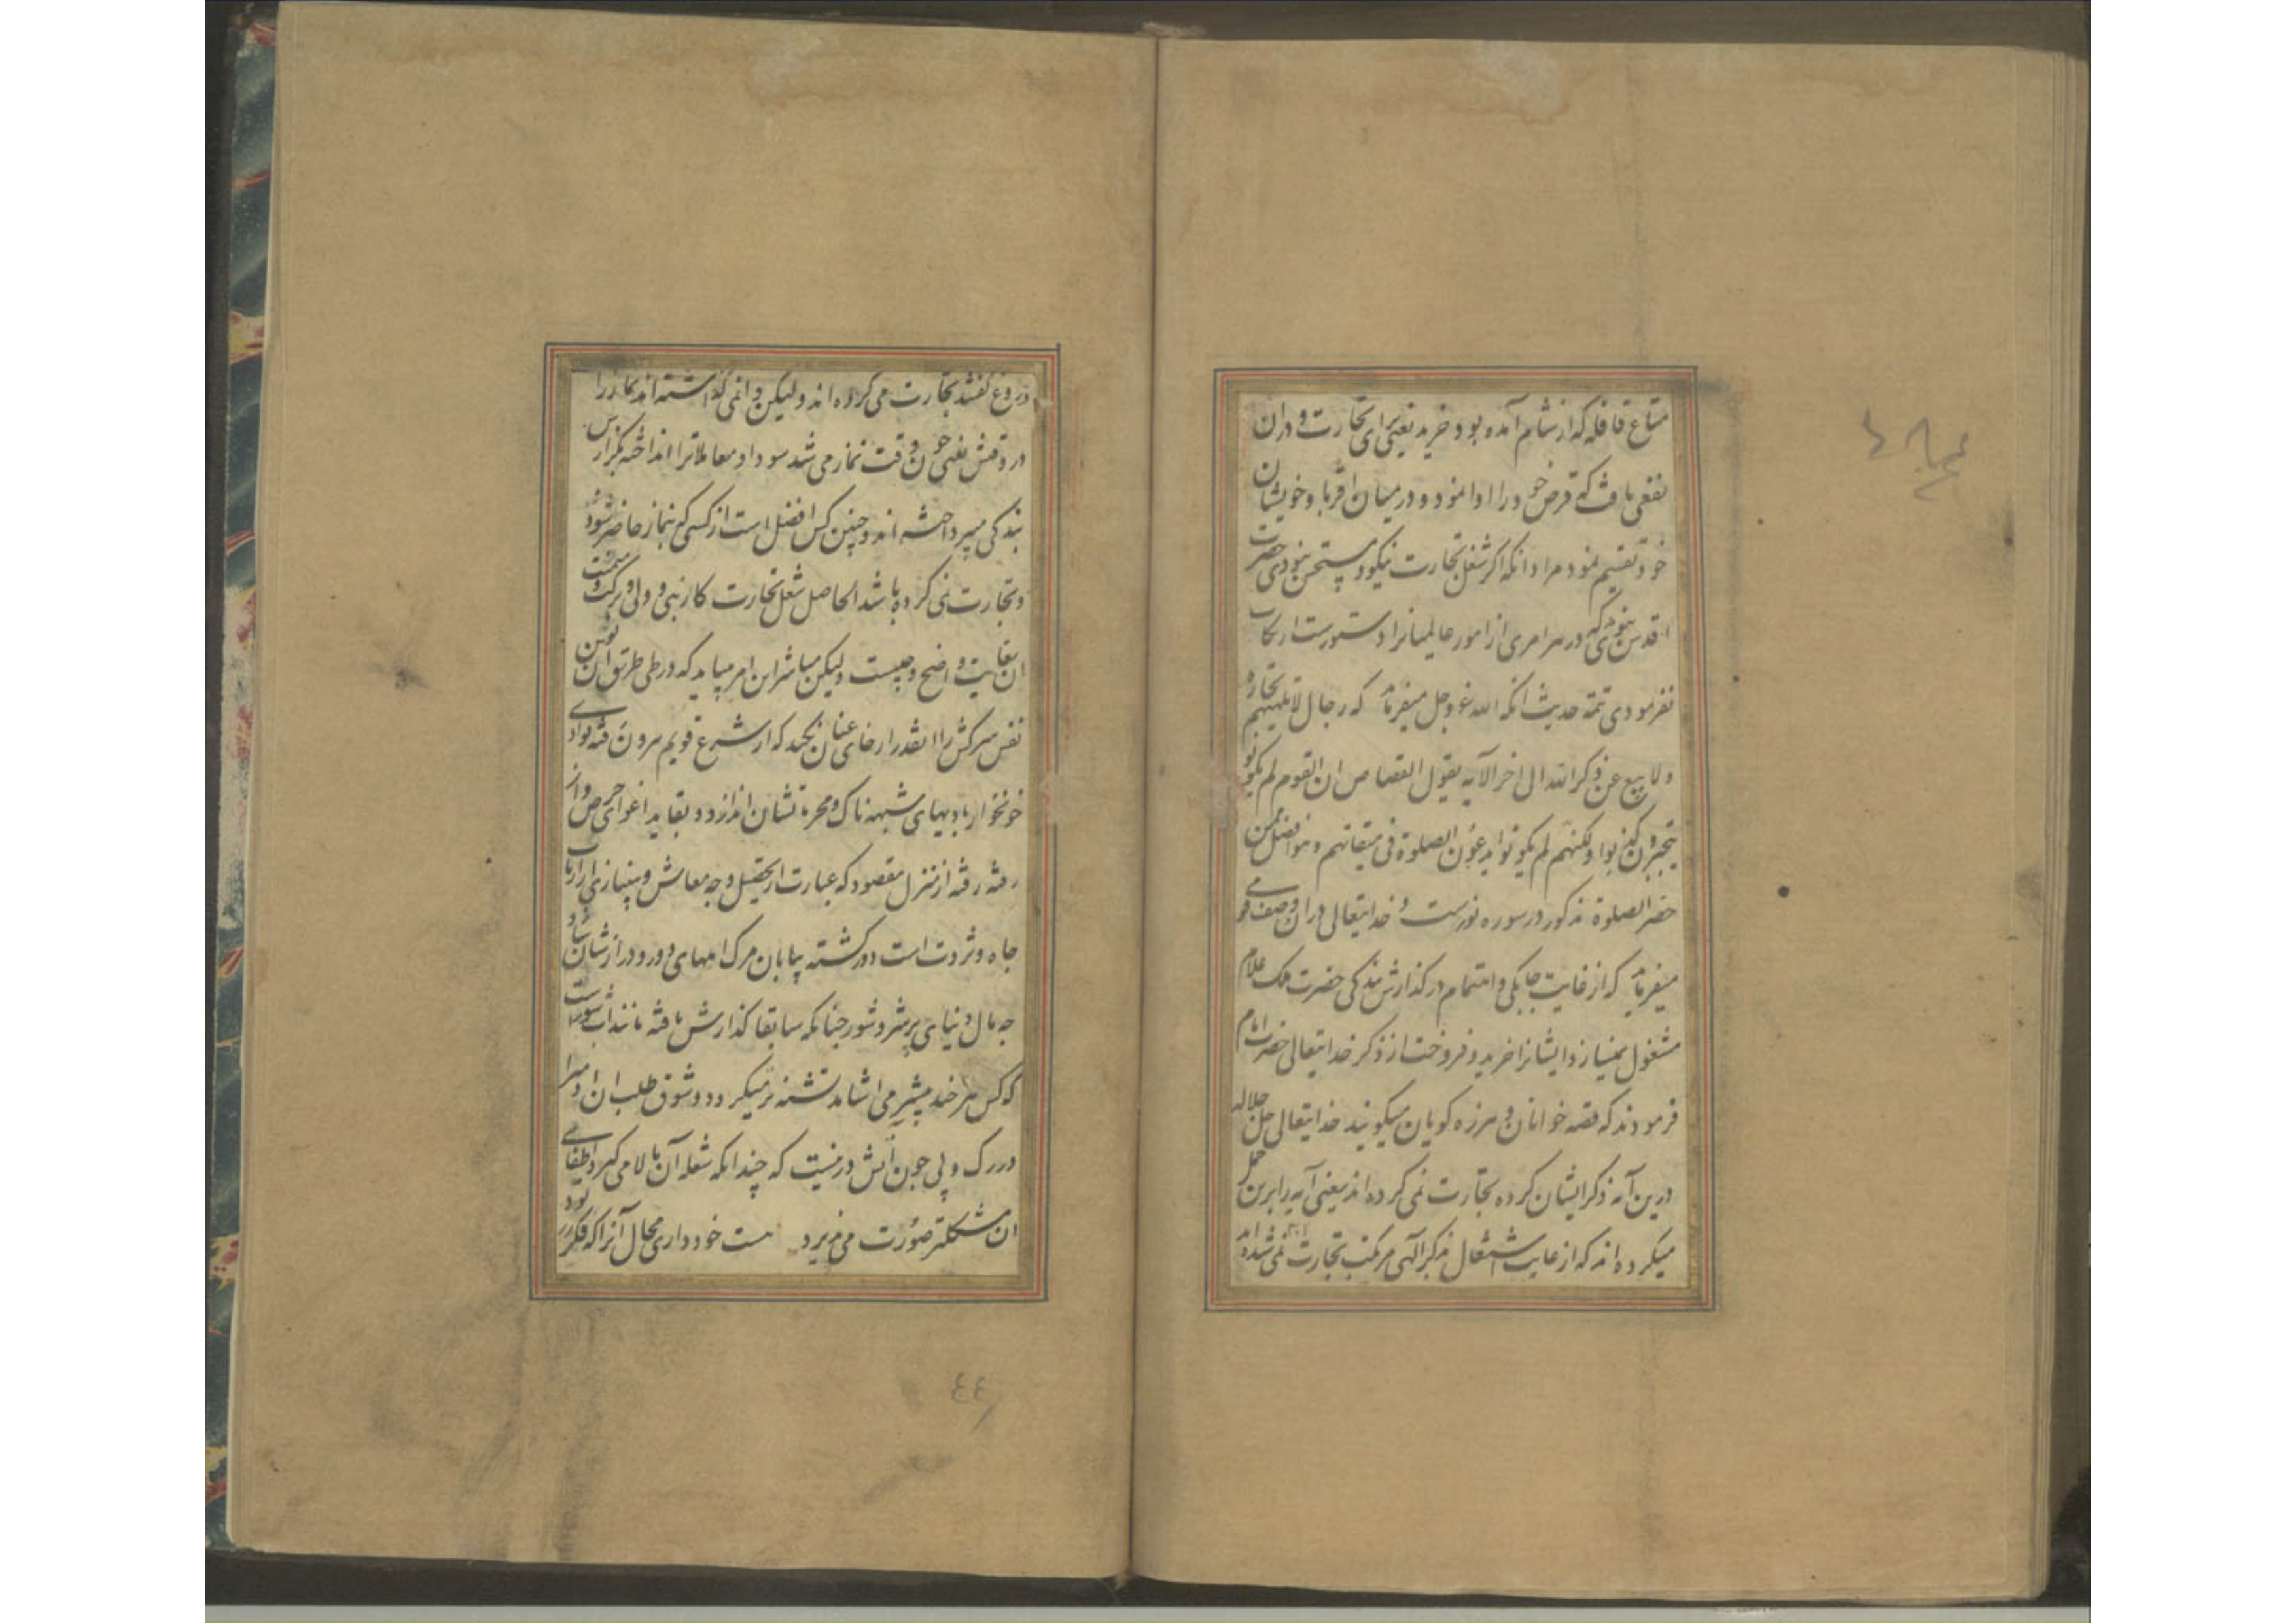 متاع قافله که از شام آمده بود خرید یعنی برای تجارت و دران
نفعی یافت که قرض خود را ادا نمود و در میان اقربا و خویشان
خود تقسیم نمود مراد انکه اکر شغل تجارت نیکو و مستحسن نبودی حضرت
اقدس نبوی که در هر امری از امور عالمیانرا دستورست ارتکاب
نفرمودی تتمه حدیث انکه الله عز و جل میفرماید که رجال لا تلهیهم تجارة
ولا بیع عن ذکر الله الی اخر الآیه یقول القصاص ان القوم لم یکونوا
یتجرون کذبوا ولکنهم لم یکونوا یدعون الصلوة فی میقاتهم و هو افضل ممن
حضر الصلوة مذکور در سوره نورست و خدایتعالی دران وصف قومی
میفرماید که از غایت چابکی و اهتمام در کذارش بندکی حضرت ملک علام
مشغول نمیسازد ایشانرا خرید و فروخت از ذکر خدایتعالی حضرت امام
فرمودند که قصه خوانان و هرزه کویان میکویند خدایتعالی جل جلاله
درین آیه ذکر ایشان کرده تجارت نمی کرده اند یعنی آیه را برین حمل
میکرده اند که از غایت اشتغال بذکر الهی مرتکب تجارت نمی شده اند
دروغ گفتند تجارت می کرده اند و لیکن وانمی گذاشته اند نماز را
در وقتش یعنی چون وقت نماز می شد سودا و معاملاترا انداخته بکزارش
بندکی میپرداخته اند و چنین کس افضل است از کسی که بنماز حاضر شود
و تجارت نمی کرده باشد الحاصل شغل تجارت کار نبی و ولی و برکت و
ان بغایت واضح و لیکن مباشر این امر میباید که در طی طریق ان توسن
نفس سرکش را انقدر ارخای عنان نکند که از شرع قویم بیرون رفته بوادی
خونخوار بادیهای شبهه ناک و محرمات نشان اندازد و بقاید اغوای حرص و از
رفته رفته از منزل مقصود که عبارت از تحصیل وجه معاش و بینیازی از ارباب
جاه و ثروت است دور کشته بیابان مرک املهای دور و دراز شان شود
چه مال دنیای پر شر و شور چنانکه سابقا کذارش یافته مانند آب شورست
که کس هر چند بیشتر می اشامد تشنه تر میکردد و شوق طلب ان او را
در رک و پی چون آتش در نیست که چندانکه شعله آن بالا می کیرد اطفای
ان مشکلتر صورت می پذیرد ست خود داری محال آنرا که فکر زر بود
٤٤